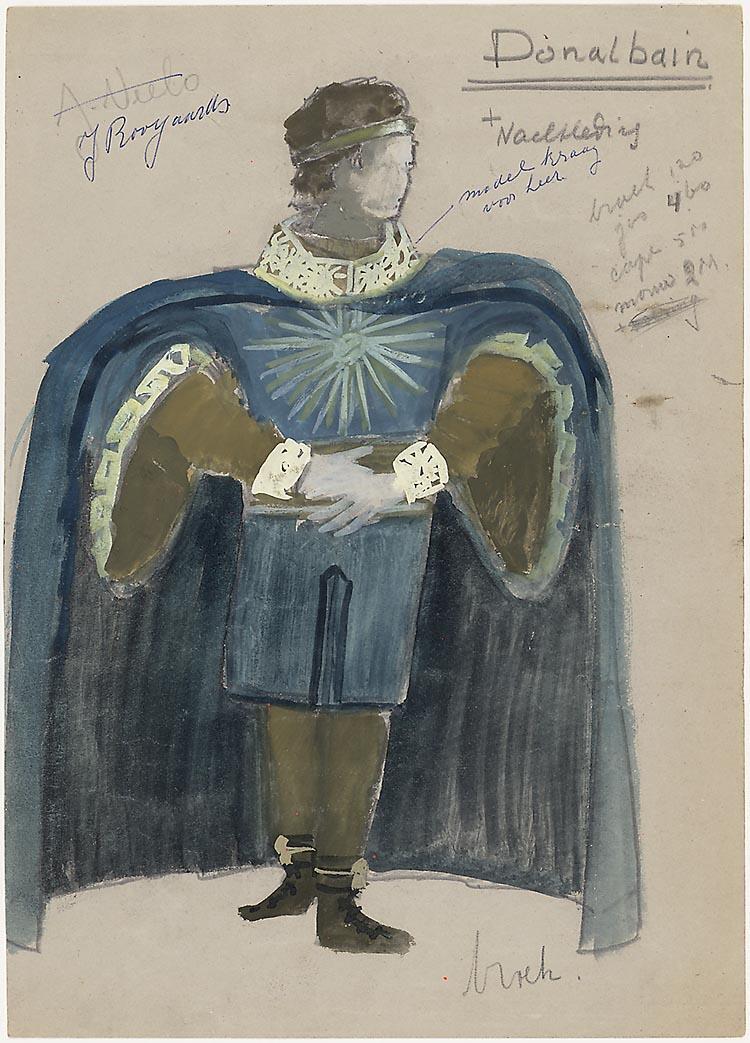 Donalbain
A. Nielo
J Rooyaards
+ Nachtkleding
model kraag
voor leer.
broek 1,20
jas 4,60
cape 5 M
mouw 2 M.
broek.